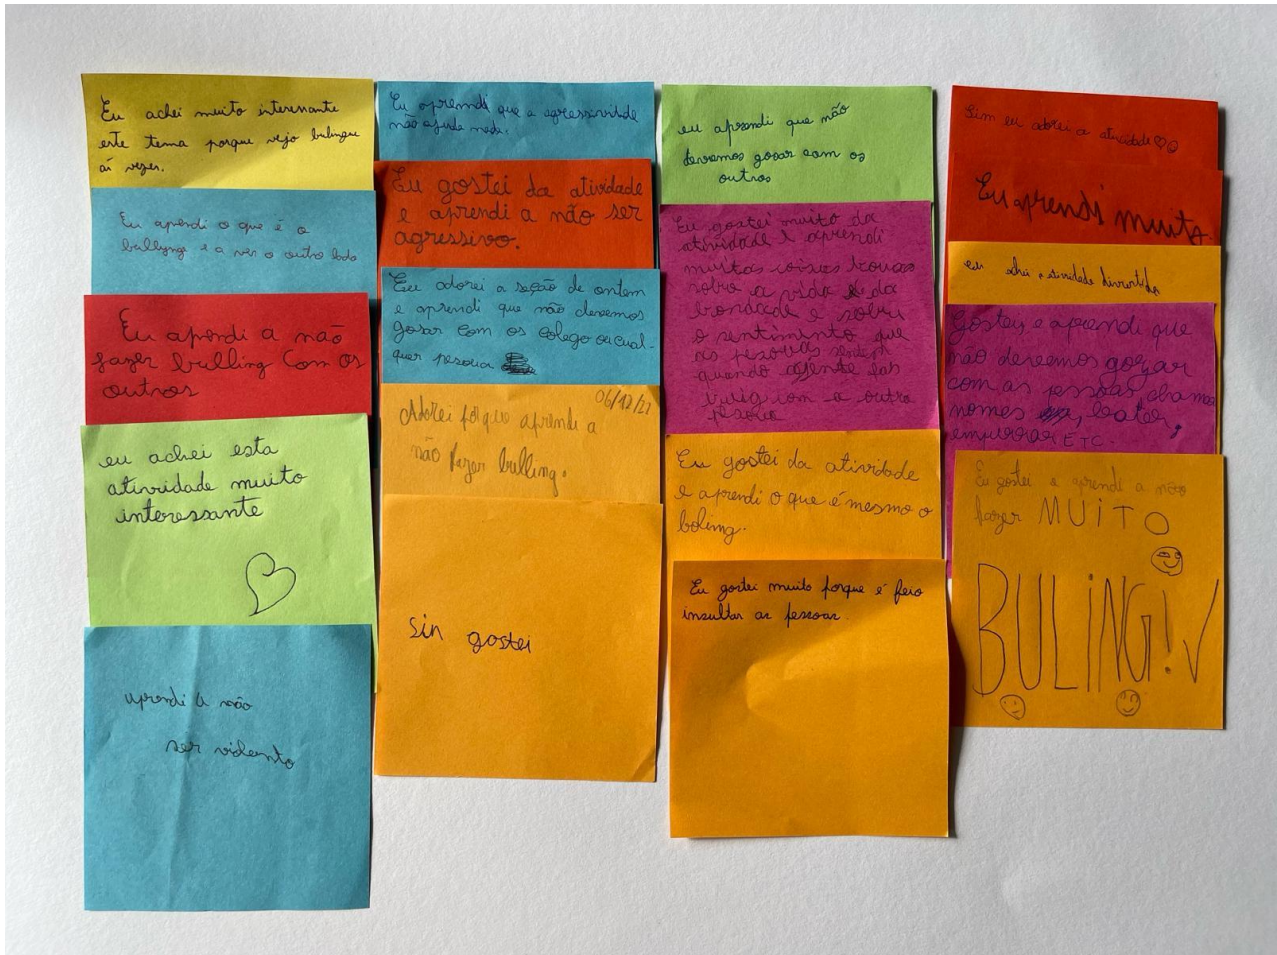 Eu achei muito interessante
este tema porque vejo bulingue
ás vezes.
Eu aprendi o que é o
bullyng e a ver o outro lado
Eu apendi a não
fazer bulling com os
outros
eu achei esta
atividade muito
interessante
aprendi a não
ser violento
Eu aprendi que a agressividade
não ajuda nada.
Eu gostei da atividade
e aprendi a não ser
agressivo.
Eu adorei a seção de ontem
e aprendi que não devemos
gosar com os colego ou cual-
quer pessoua
06/12/21
Adorei porque aprendi a
não fazer bulling.
Sin gostei
eu aprendi que não
devemos gosar com os
outros
Eu gostei muito da
atividade e aprendi
muitas coisas
sobre a vida da
e sobre
o sentiminto que
as pesouas sentem
quando agente fas
com a outra
pesoua
Eu gostei da atividade
e aprendi o que é mesmo o
boling.
Eu gostei muito porque é feio
insultar as pessoas.
Sim eu adorei a atividade
Eu aprendi muito.
eu achei a atividade divertida
Gostei, e aprendi que
não devemos gozar
com as pessoas chamar
nomes, bater,
empurrar ETC.
Eu gostei e aprendi a não
fazer MUiTO
BULiNG!